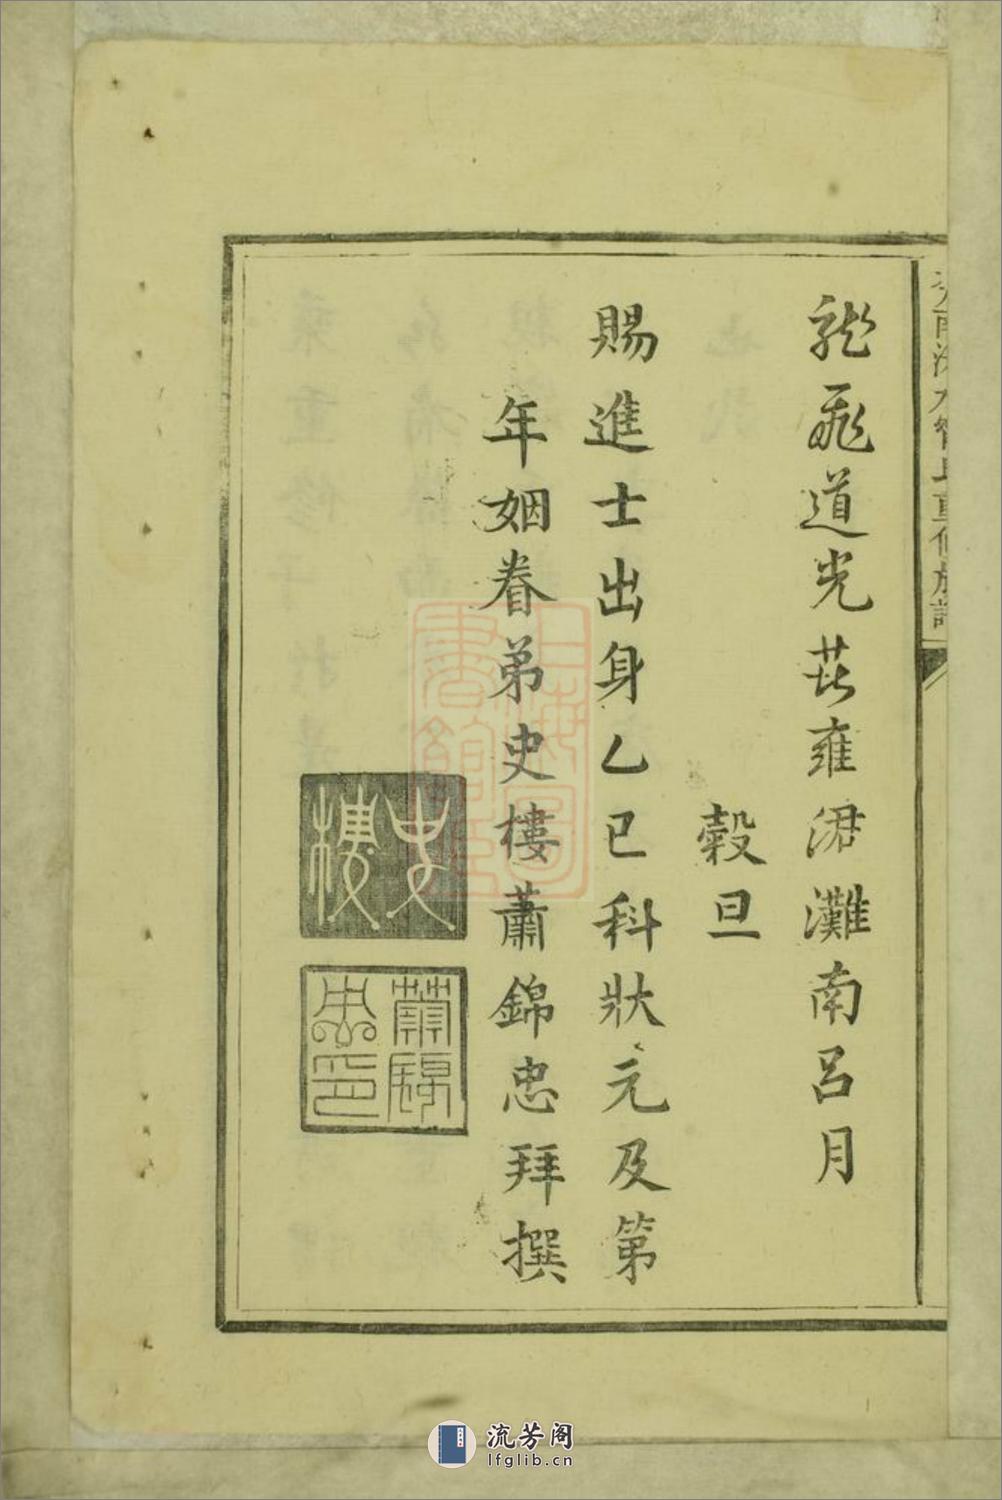 龍飛道光著雍涒灘南呂月
穀旦
賜進士出身乙巳科狀元及第
年姻眷弟史樓蕭錦忠拜撰
史樓
蕭錦忠印
上海圖書館藏
流芳阁
lfglib.cn